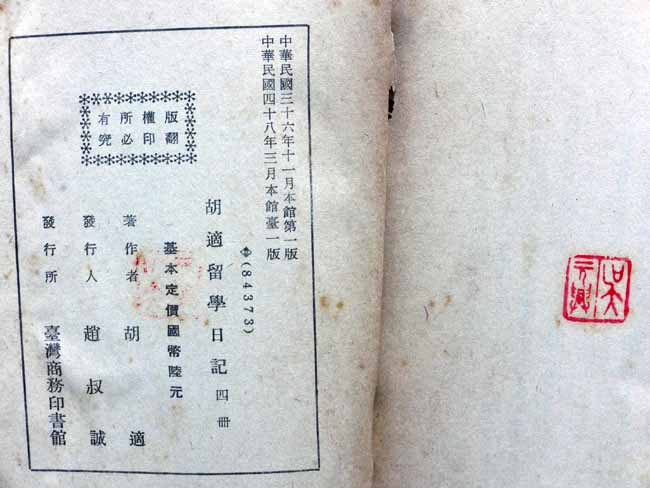 中華民國三十六年十一月本館第一版
中華民國四十八年三月本館臺一版
(84373)
胡適留學日記 四冊
基本定價國幣陸元
版權所有
翻印必究
著作者 胡適
發行人 趙叔誠
發行所 臺灣商務印書館